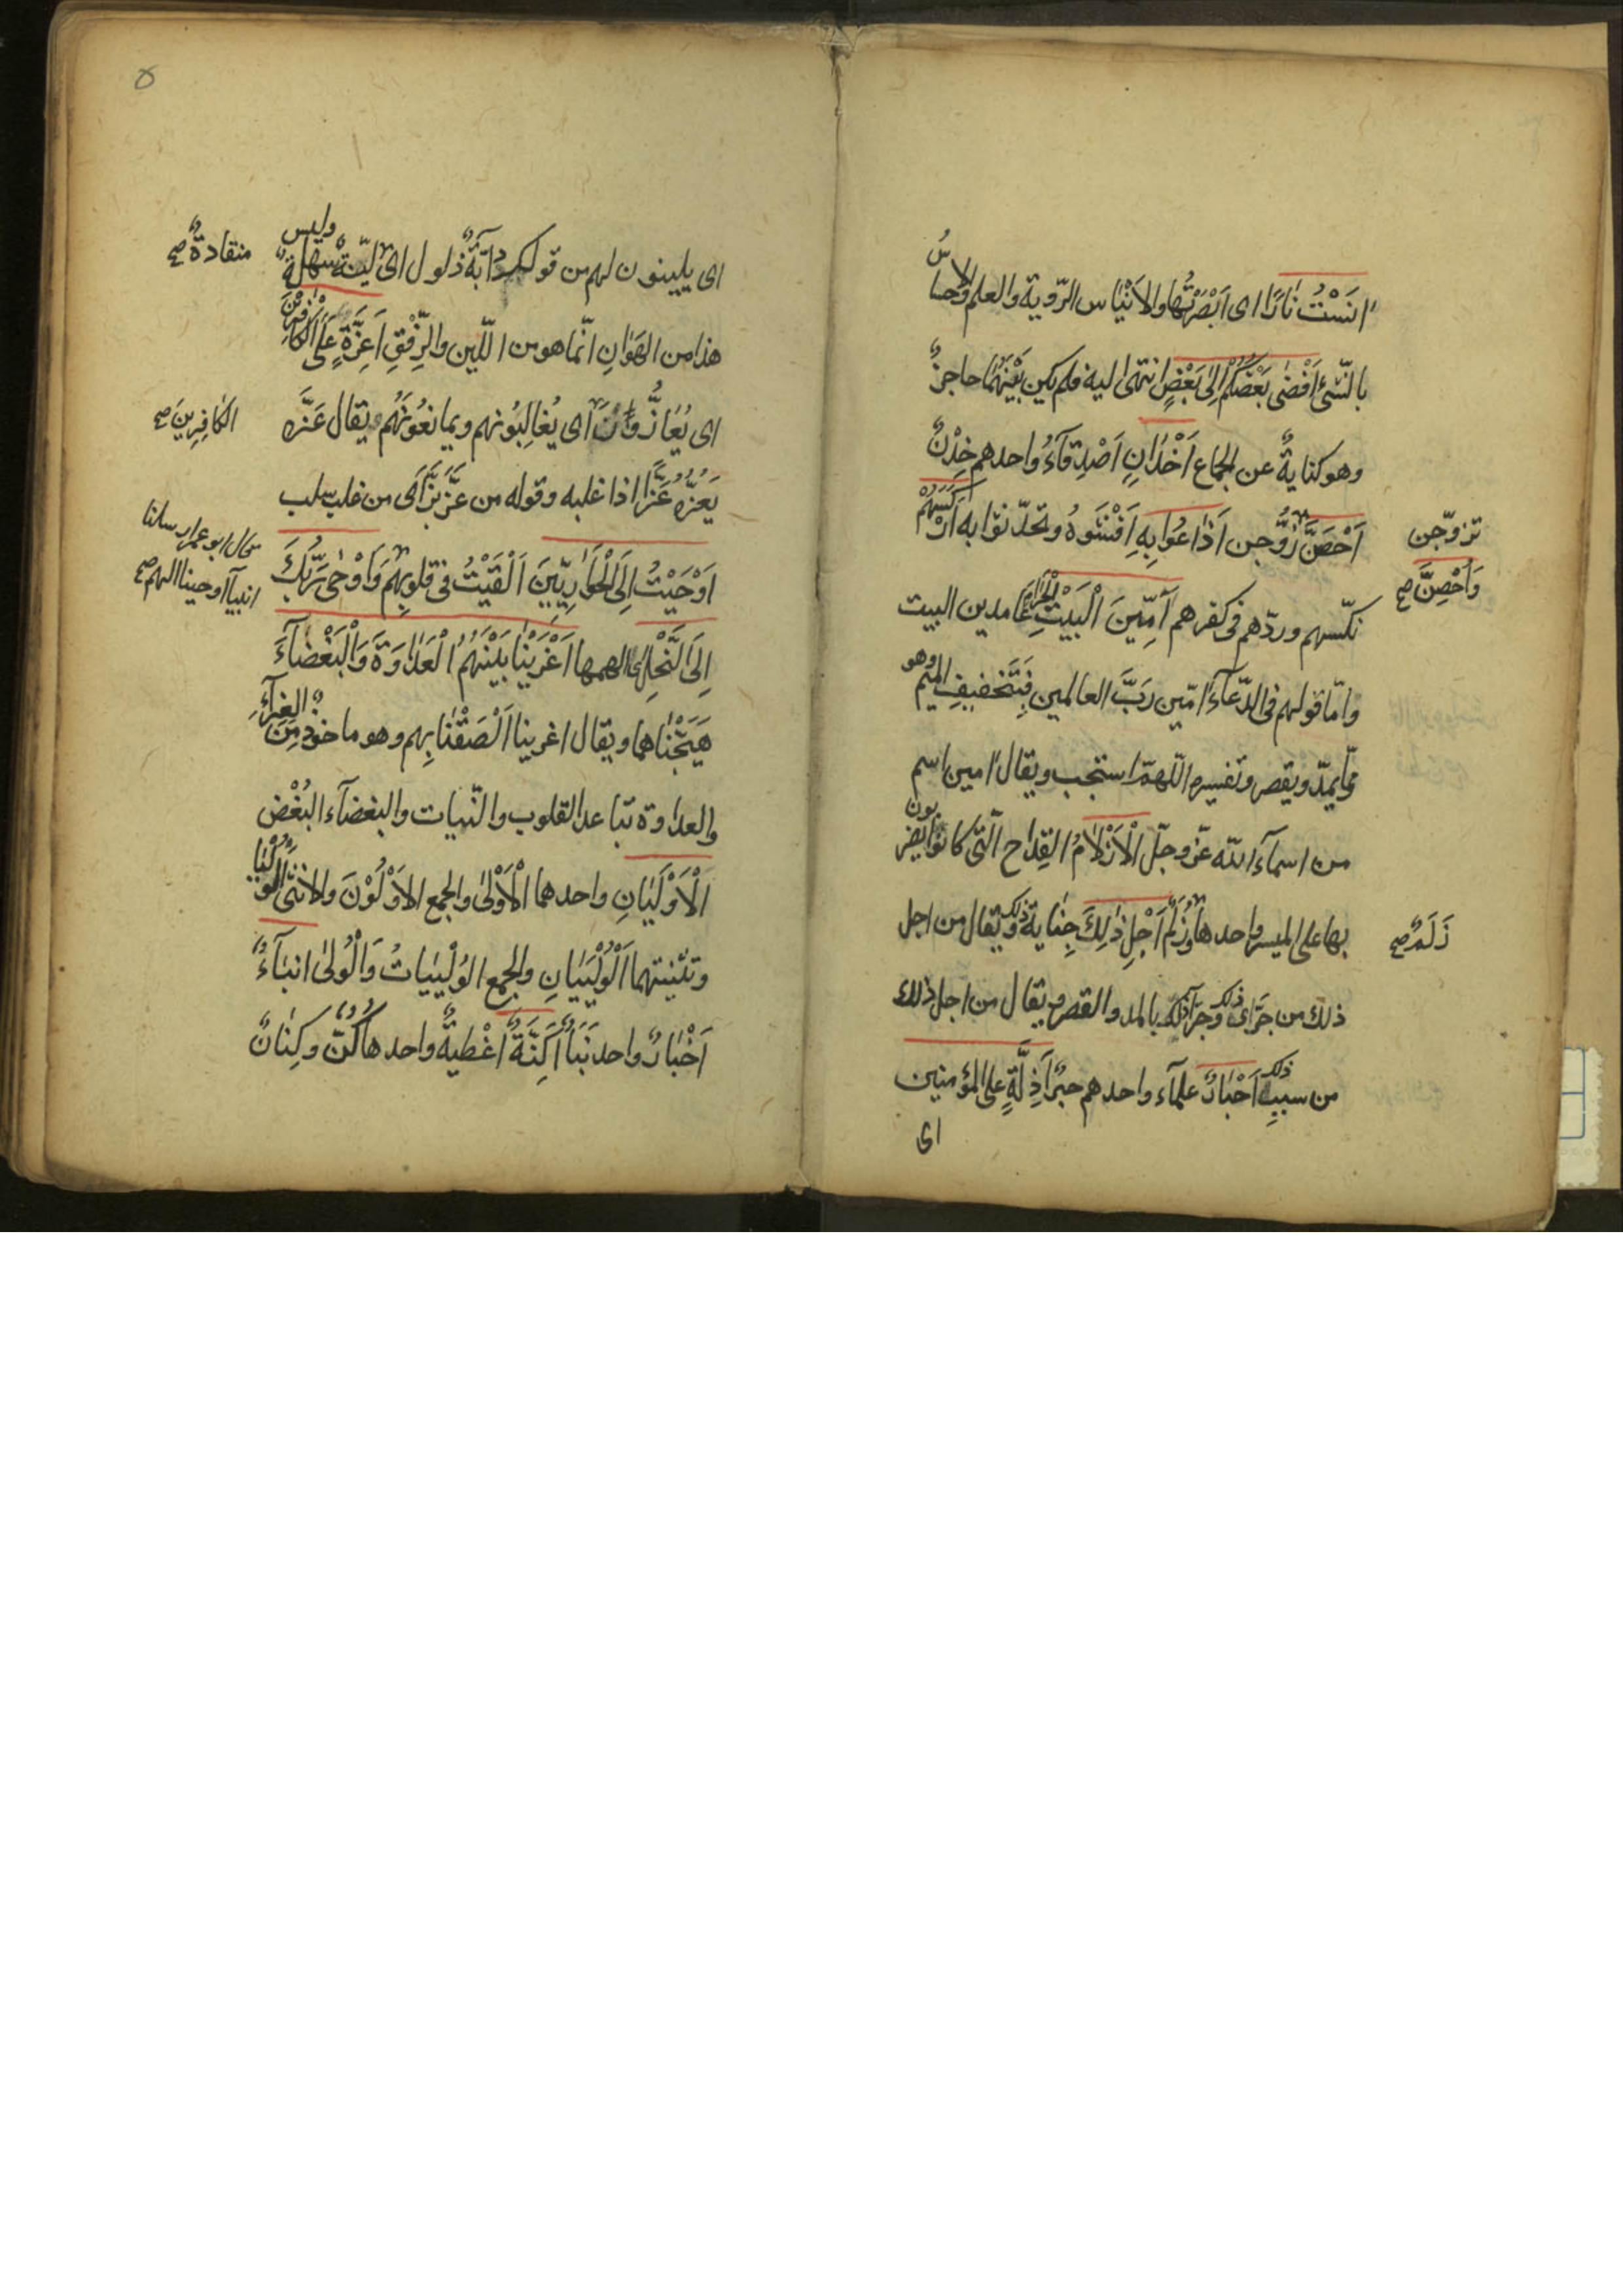 اٰنَسْتُ نَارًا اى اَبْصَرْتُها والاِيْناس الرّوية والعلم والاحساسُ
بالشّئ اَفْضٰى بَعْضُكُمْ اِلىٰ بَعْضٍ انتهى اليه فلم يكن بَيْنَهُمَا حاجزٌ
وهو كنايةٌ عن الجماع اَخْدٰانٍ اَصْدِقآءُ واحدهم خِدْنٌ
اَحْصَنَّ زُوِّجن اَذٰاعُوا بِهِ اَفْشَوهُ وتحدّثوا به اَرْكَسَهُمْ
تزوّجن
وَاُحْصِنَّ صح
نكّسهم وردّهم فى كفرهم آمِّينَ الْبَيْتَ الْحَرٰامَ عَامدين البيت
وامّا قولهم فى الدّعآء اٰمين رَبَّ العالمين فبِتَخفيفِ الميم وهو
ممّا يمدّ ويقصر وتفسيره اللّهمّ استجب ويقال اٰمين اسم
من اسمآء اللّه عزّ وجلّ الْاَزْلٰامُ القِدٰاح الّتى كانوا يضربون
بها على الميسر واحدها زُلَم اَجْلِ ذٰلِكَ جِنٰاية ذلك ويقال من اجل
زَلَمٌ صح
ذلك من جَرّاى ذلك وجَرّآء ذلك بالمد والقصر ويقال من اجل ذلك
من سببِ ذلك اَحْبٰارٌ علمآء واحدهم حبرٌ اَذِلَّةٍ على المؤمنين
اى
٥
اى يلينون لهم من قولك دٰآبّةٌ ذلول اى ليّنة سهلة وليس
منقادةٌ صح
هذا من الهَوٰانِ انّما هو من اللّين والرِّفْقِ اَعِزَّةٍ عَلَى الْكٰافِرِينَ
اى يُعٰازُّوَنَ اى يُغالِبُونهم ويمانعُونَهُم يقال عَزَّه
الكٰافِرِينَ صح
يَعُزُّه عَزًّا اذا غلبه وقوله من عَزَّ بَزَّ اى من غلب سلب
اَوْحَيْتُ اِلَى الْحَوٰارِيّينَ اَلْقَيْتُ فى قلوبِهِم وَاَوْحىٰ رَبُّكَ
انبيآ اوحينا اليهم صح
اِلَى النَّحْلِ الهمها اَغْرَيْنٰا بَيْنَهُمُ الْعَدٰاوَةَ وَالْبَغْضٰآءَ
هَيَّجْنٰاها ويقال اغرينا اَلْصَقْنٰا بِهِم وهو ماخوذ مِنَ الغِرٰآءِ
والعداوة تباعد القلوب والنّيات والبغضآء البُغْض
الْاَوْلَيٰانِ واحدهما الْاَوْلىٰ والجمع الاَوْلَوْنَ والانثى الوُلْيٰا
وتثنيتهما اَلْوُلْيَيٰانِ والجمع الوُلْيَيٰاتُ وَالْوُلىٰ انبٰآءُ
اَخْبٰارٌ واحد نَبَأٌ اَكِنَّةٌ اَغْطيةٌ واحدها كُنٌّ وكِنٰانٌ